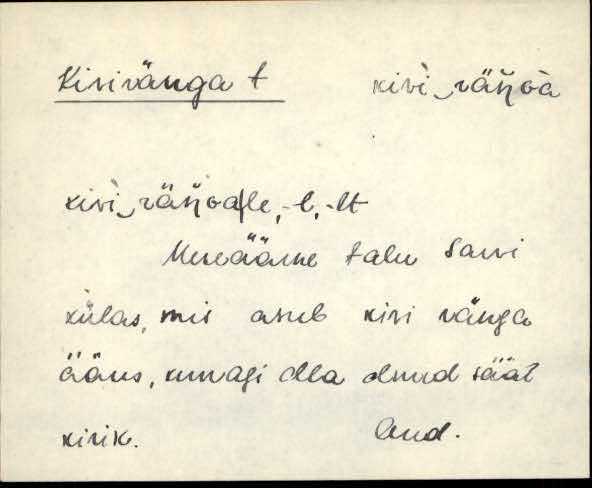 Kirivänga t kiri‿väŋ̆ɢà
kiri‿väŋ̆ɢa|le, -l, -lt
Mereäärne talu Sauvi
külas, mis asub kiri vänga
ääres, kunagi olla olnud säät
kirik. And.